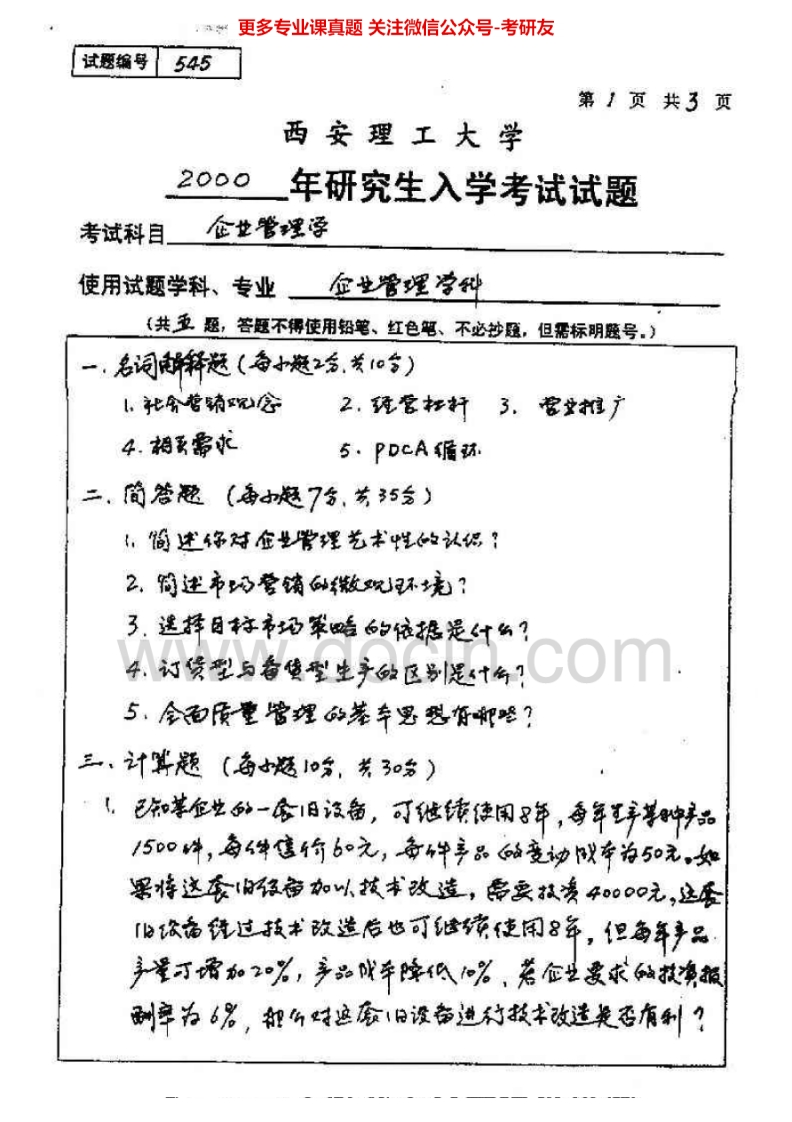 更多专业课真题 关注微信公众号-考研友
试题编号 545
第 1 页 共 3 页
西安理工大学
2000 年研究生入学考试试题
考试科目 企业管理学
使用试题学科、专业 企业管理学科
(共五题,答题不得使用铅笔、红色笔、不必抄题,但需标明题号。)
一、名词解释题(每小题2分,共10分)
1. 社会营销观念 2. 经营杠杆 3. 营业推广
4. 相关需求 5. PDCA循环
二、简答题(每小题7分,共35分)
1. 简述你对企业管理艺术性的认识?
2. 简述市场营销的微观环境?
3. 选择目标市场策略的依据是什么?
4. 订货型与备货型生产的区别是什么?
5. 全面质量管理的基本思想有哪些?
www.docin.com
三、计算题(每小题10分,共30分)
1. 已知某企业的一套旧设备,可继续使用8年,每年生产某种产品
1500件,每件售价60元,每件产品的变动成本为50元。如
果将这套旧设备加以技术改造,需要投资40000元,这套
旧设备经过技术改造后也可继续使用8年,但每年产品
产量可增加20%,产品成本降低10%,若企业要求的投资报
酬率为6%,那么对这套旧设备进行技术改造是否有利?